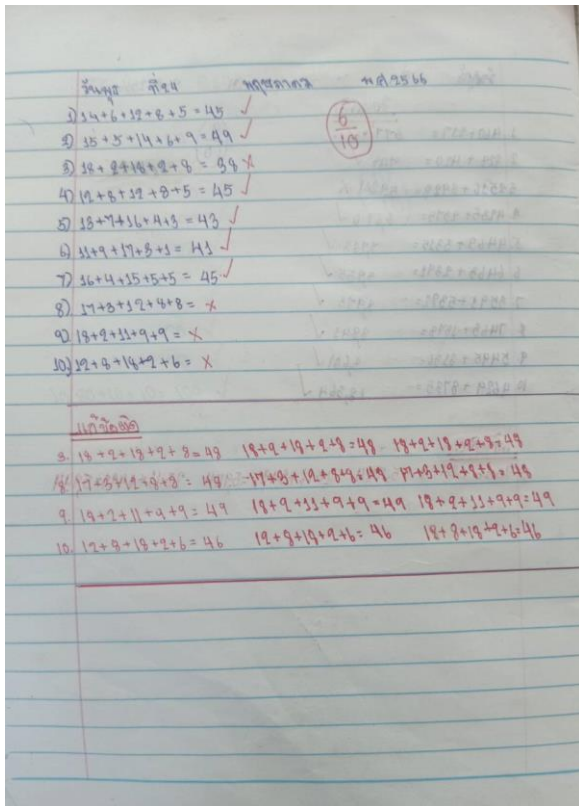 วันพุธ ที่24 พฤษภาคม พ.ศ2566
1) 14+6+12+8+5=45 ✓
2) 15+5+14+6+9=49 ✓
6/10
3) 18+2+18+2+8=38 ×
4) 12+8+12+8+5=45 ✓
5) 13+7+16+4+3=43 ✓
6) 11+9+17+3+1=41 ✓
7) 16+4+15+5+5=45 ✓
8) 17+3+12+8+8= ×
9) 18+2+11+9+9= ×
10) 12+8+18+2+6= ×
แก้ข้อผิด
3. 18+2+18+2+8=48 18+2+18+2+8=48 18+2+18+2+8=48
8. 17+3+12+8+8=48 17+3+12+8+8=48 17+3+12+8+8=48
9. 18+2+11+9+9=49 18+2+11+9+9=49 18+2+11+9+9=49
10. 12+8+18+2+6=46 12+8+18+2+6=46 18+8+18+2+6=46